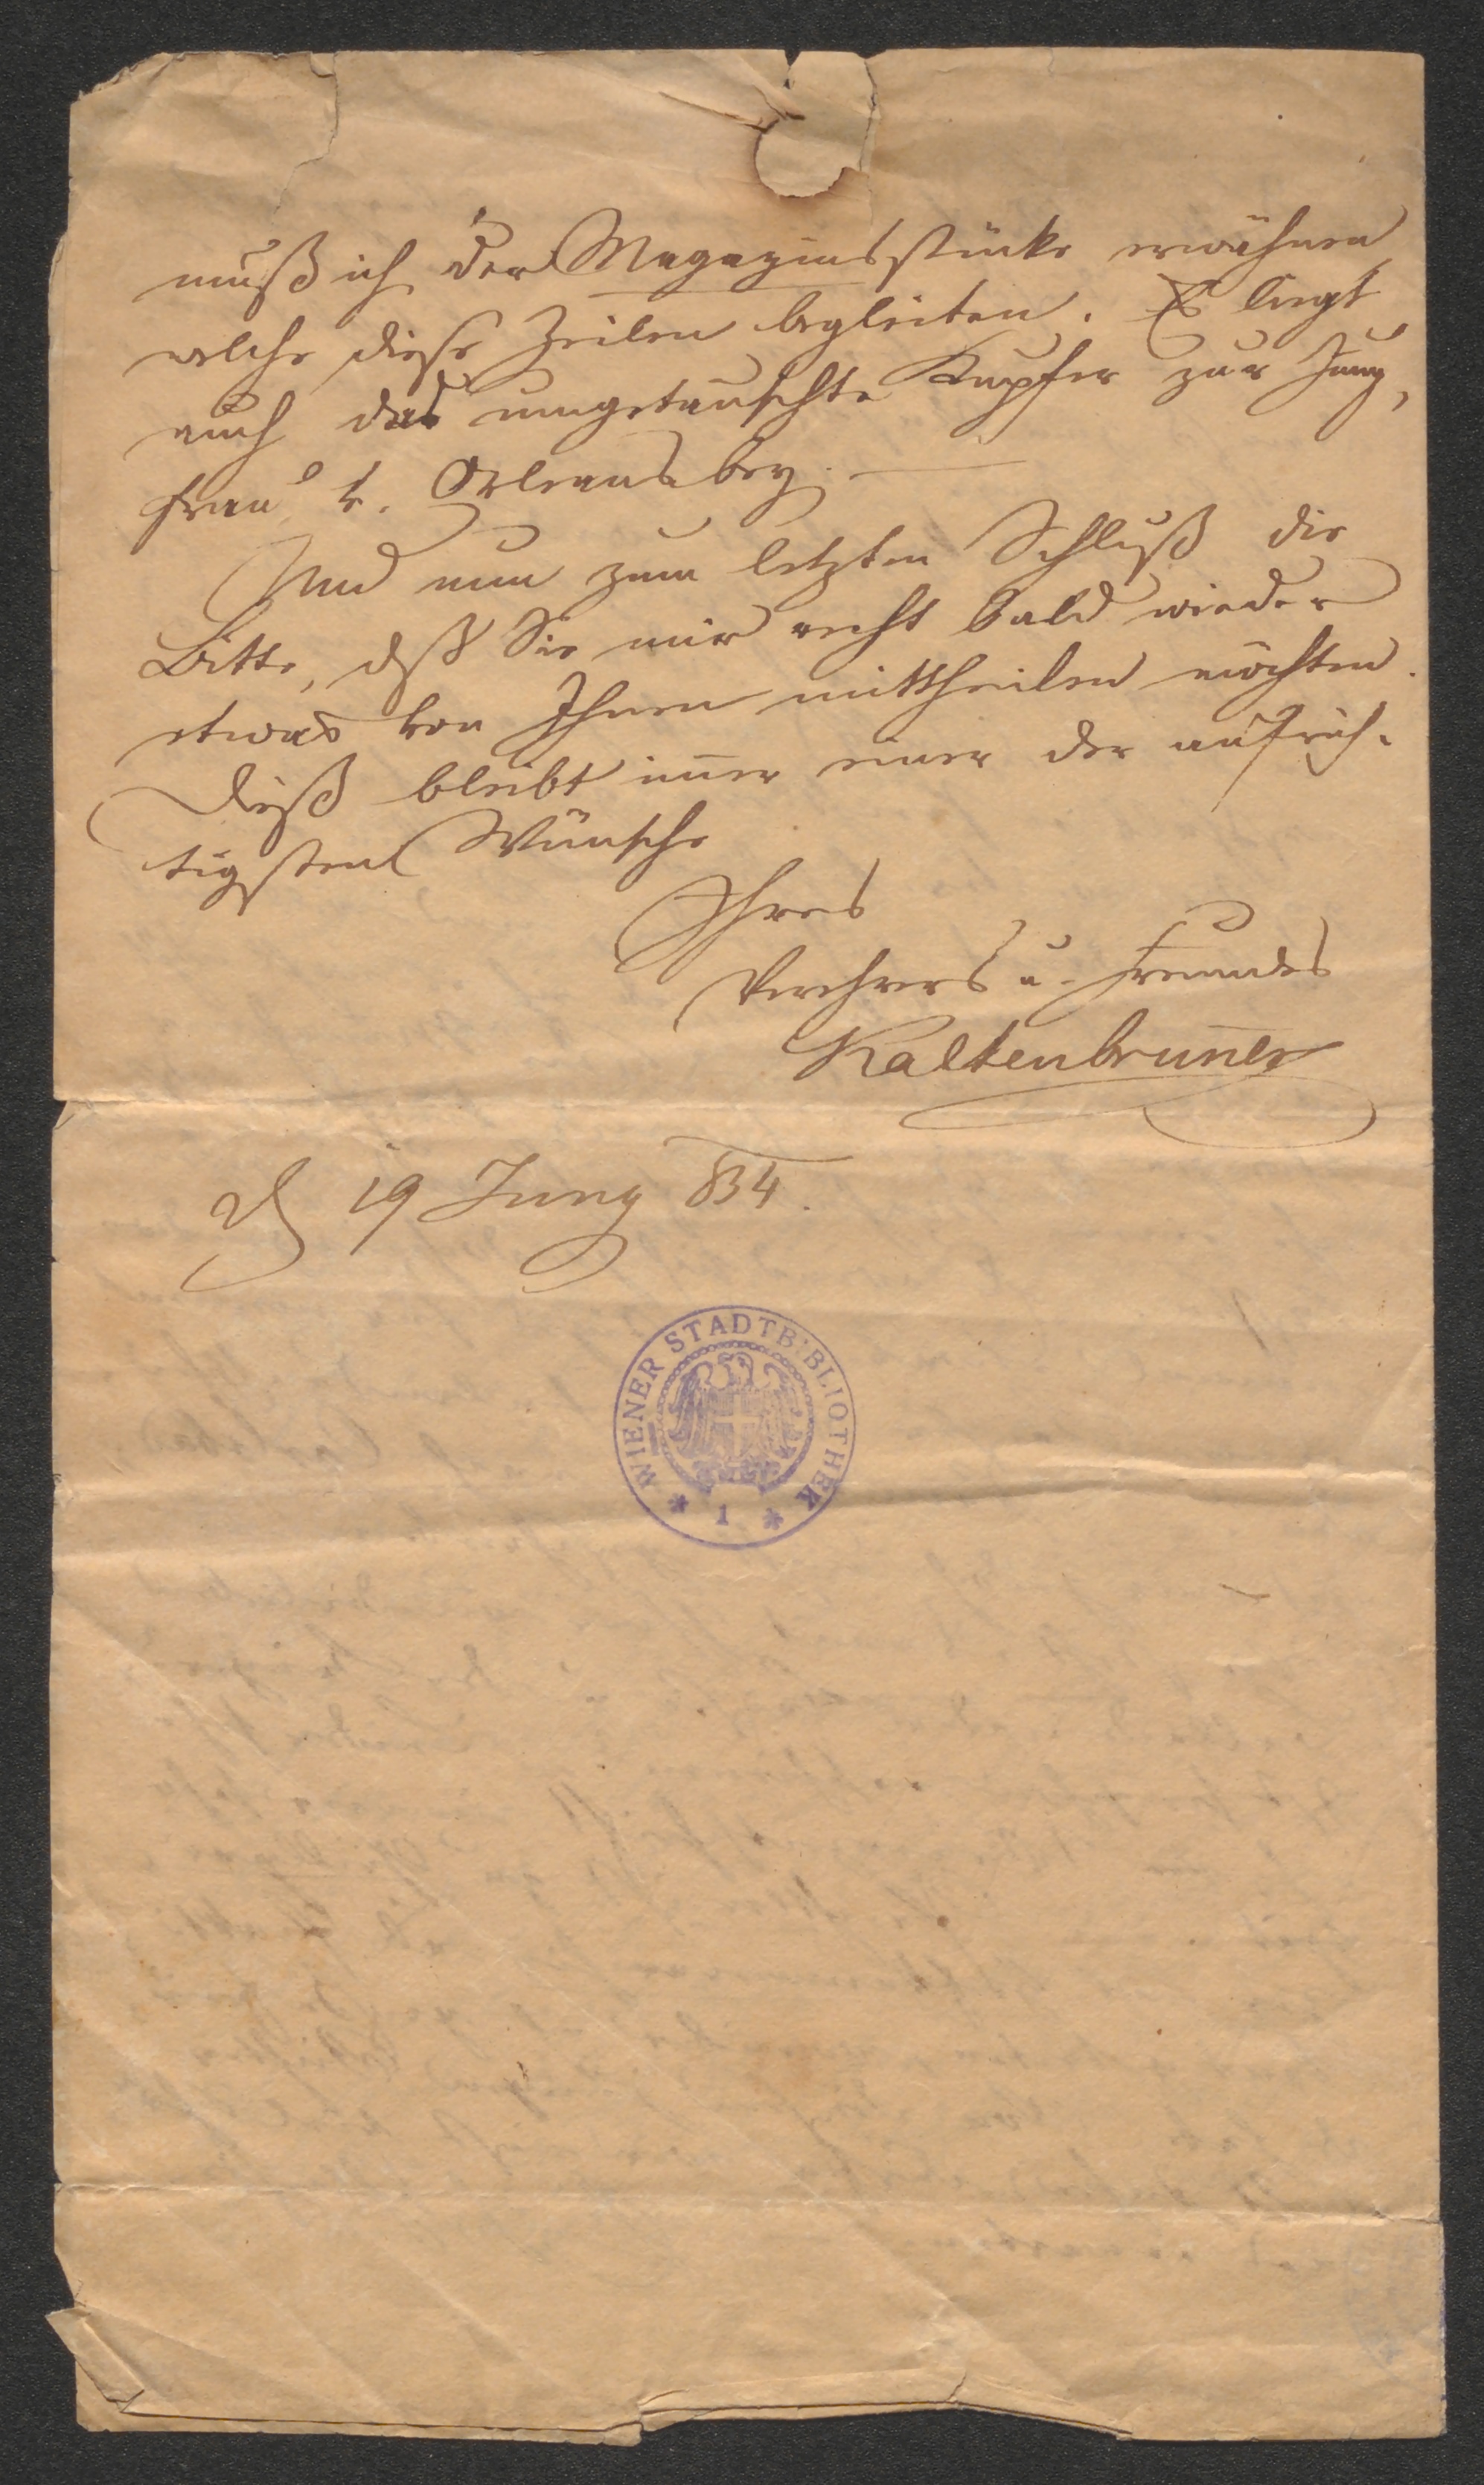 muß ich der Magazinsstücke erwähnen
welche diese Zeilen begleiten. Es liegt
auch das umgetauschte Kupfer zur Jung,
frau v. Orleans bey. —
Und nun zum letzten Schluß die
Bitte, dß Sie mir recht bald wieder
etwas von Ihnen mittheilen möchten.
Dieß bleibt im̄er einer der aufrich-
tigsten Wünsche
Ihres
Verehrers u. Freundes
Kaltenbrun̄er
19 Juny 834.
WIENER STADTBIBLIOTHEK
* 1 *